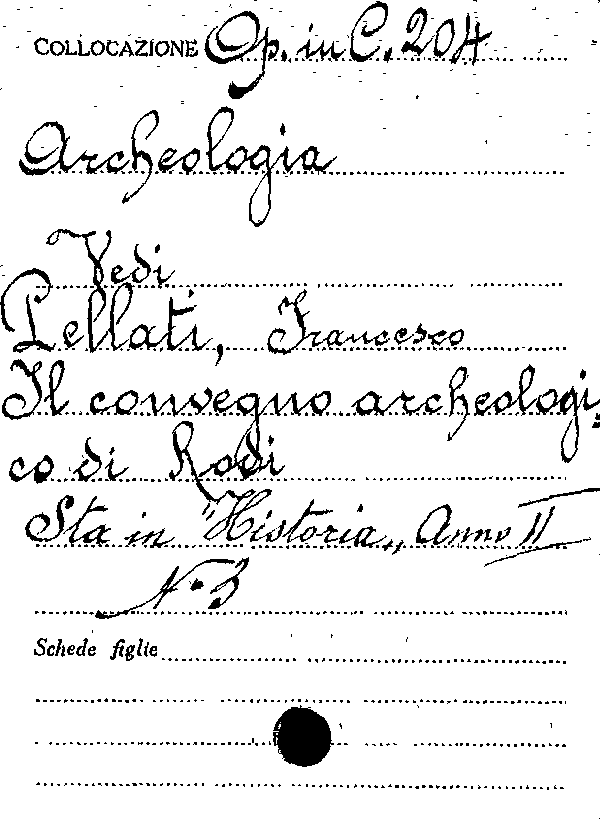 COLLOCAZIONE Op. in C. 204
Archeologia
Vedi
Pellati, Francesco
Il convegno archeologi=
co di Rodi
Sta in "Historia„ Anno II
N. 3
Schede figlie